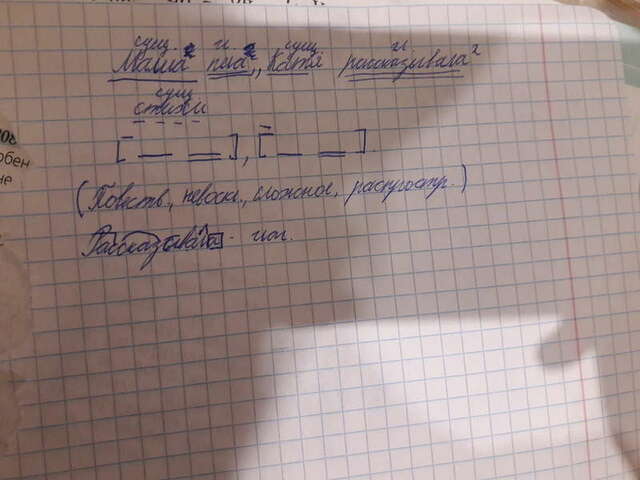 сущ. гл. сущ гл
Мама² пела, Катя рассказывала²
сущ
стихи
[ ], [ ].
(Повеств., невоскл., сложное, распростр.)
Рассказывала - глаг.
обен
не